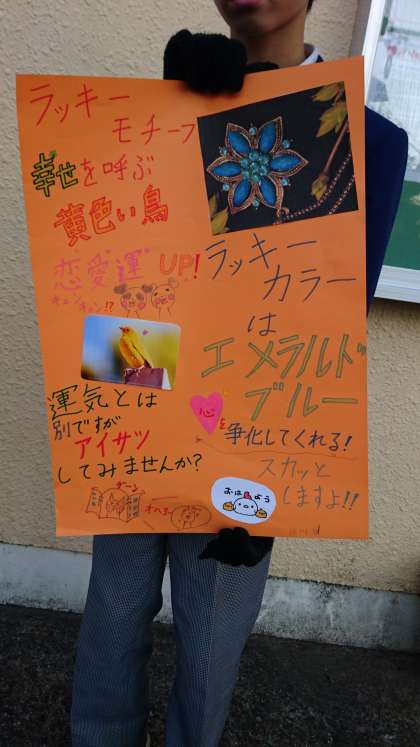 ラッキー
モチーフ
幸せを呼ぶ
黄色い鳥
恋愛運UP!
キュン
キュン!?
運気とは
別ですが
アイサツ
してみませんか?
ガーン
ラッキー
カラー
は
エメラルド
ブルー
心を
争化してくれる!
スカッと
しますよ!!
おはよう